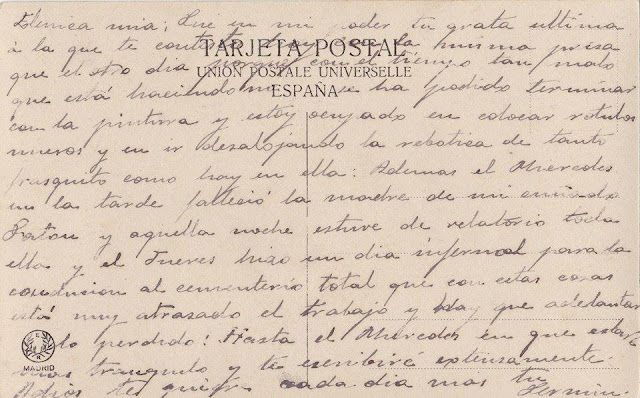 mia; Que en mi poder tu grata ultima
à la que te contesto hoy con la misma prisa
TARJETA POSTAL
que el otro dia porque con el tiempo tan malo
UNIÓN POSTALE UNIVERSELLE
que está haciendo no se ha podido terminar
ESPAÑA
con la pintura y estoy ocupado en colocar rotulos
nuevos y en ir desalojando la rebotica de tanto
frasquito como hay en ella: Ademas el Miercoles
en la tarde falleció la madre de mi
y aquella noche estuve de toda
ella y el Jueves hizo un dia infernal para la
conducion al cementerio total que con estas cosas
está muy atrasado el trabajo y hay que adelantar
lo perdido: Hasta el Miercoles en que estaré
mas tranquilo y te escribiré extensamente.
MADRID
Adios te quiere cada dia mas tu
Fermin